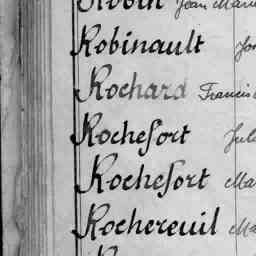 Robin Jean Marie
Robinault
Rochard Francis
Rochefort Jul
Rochefort Ma
Rochereuil Ma